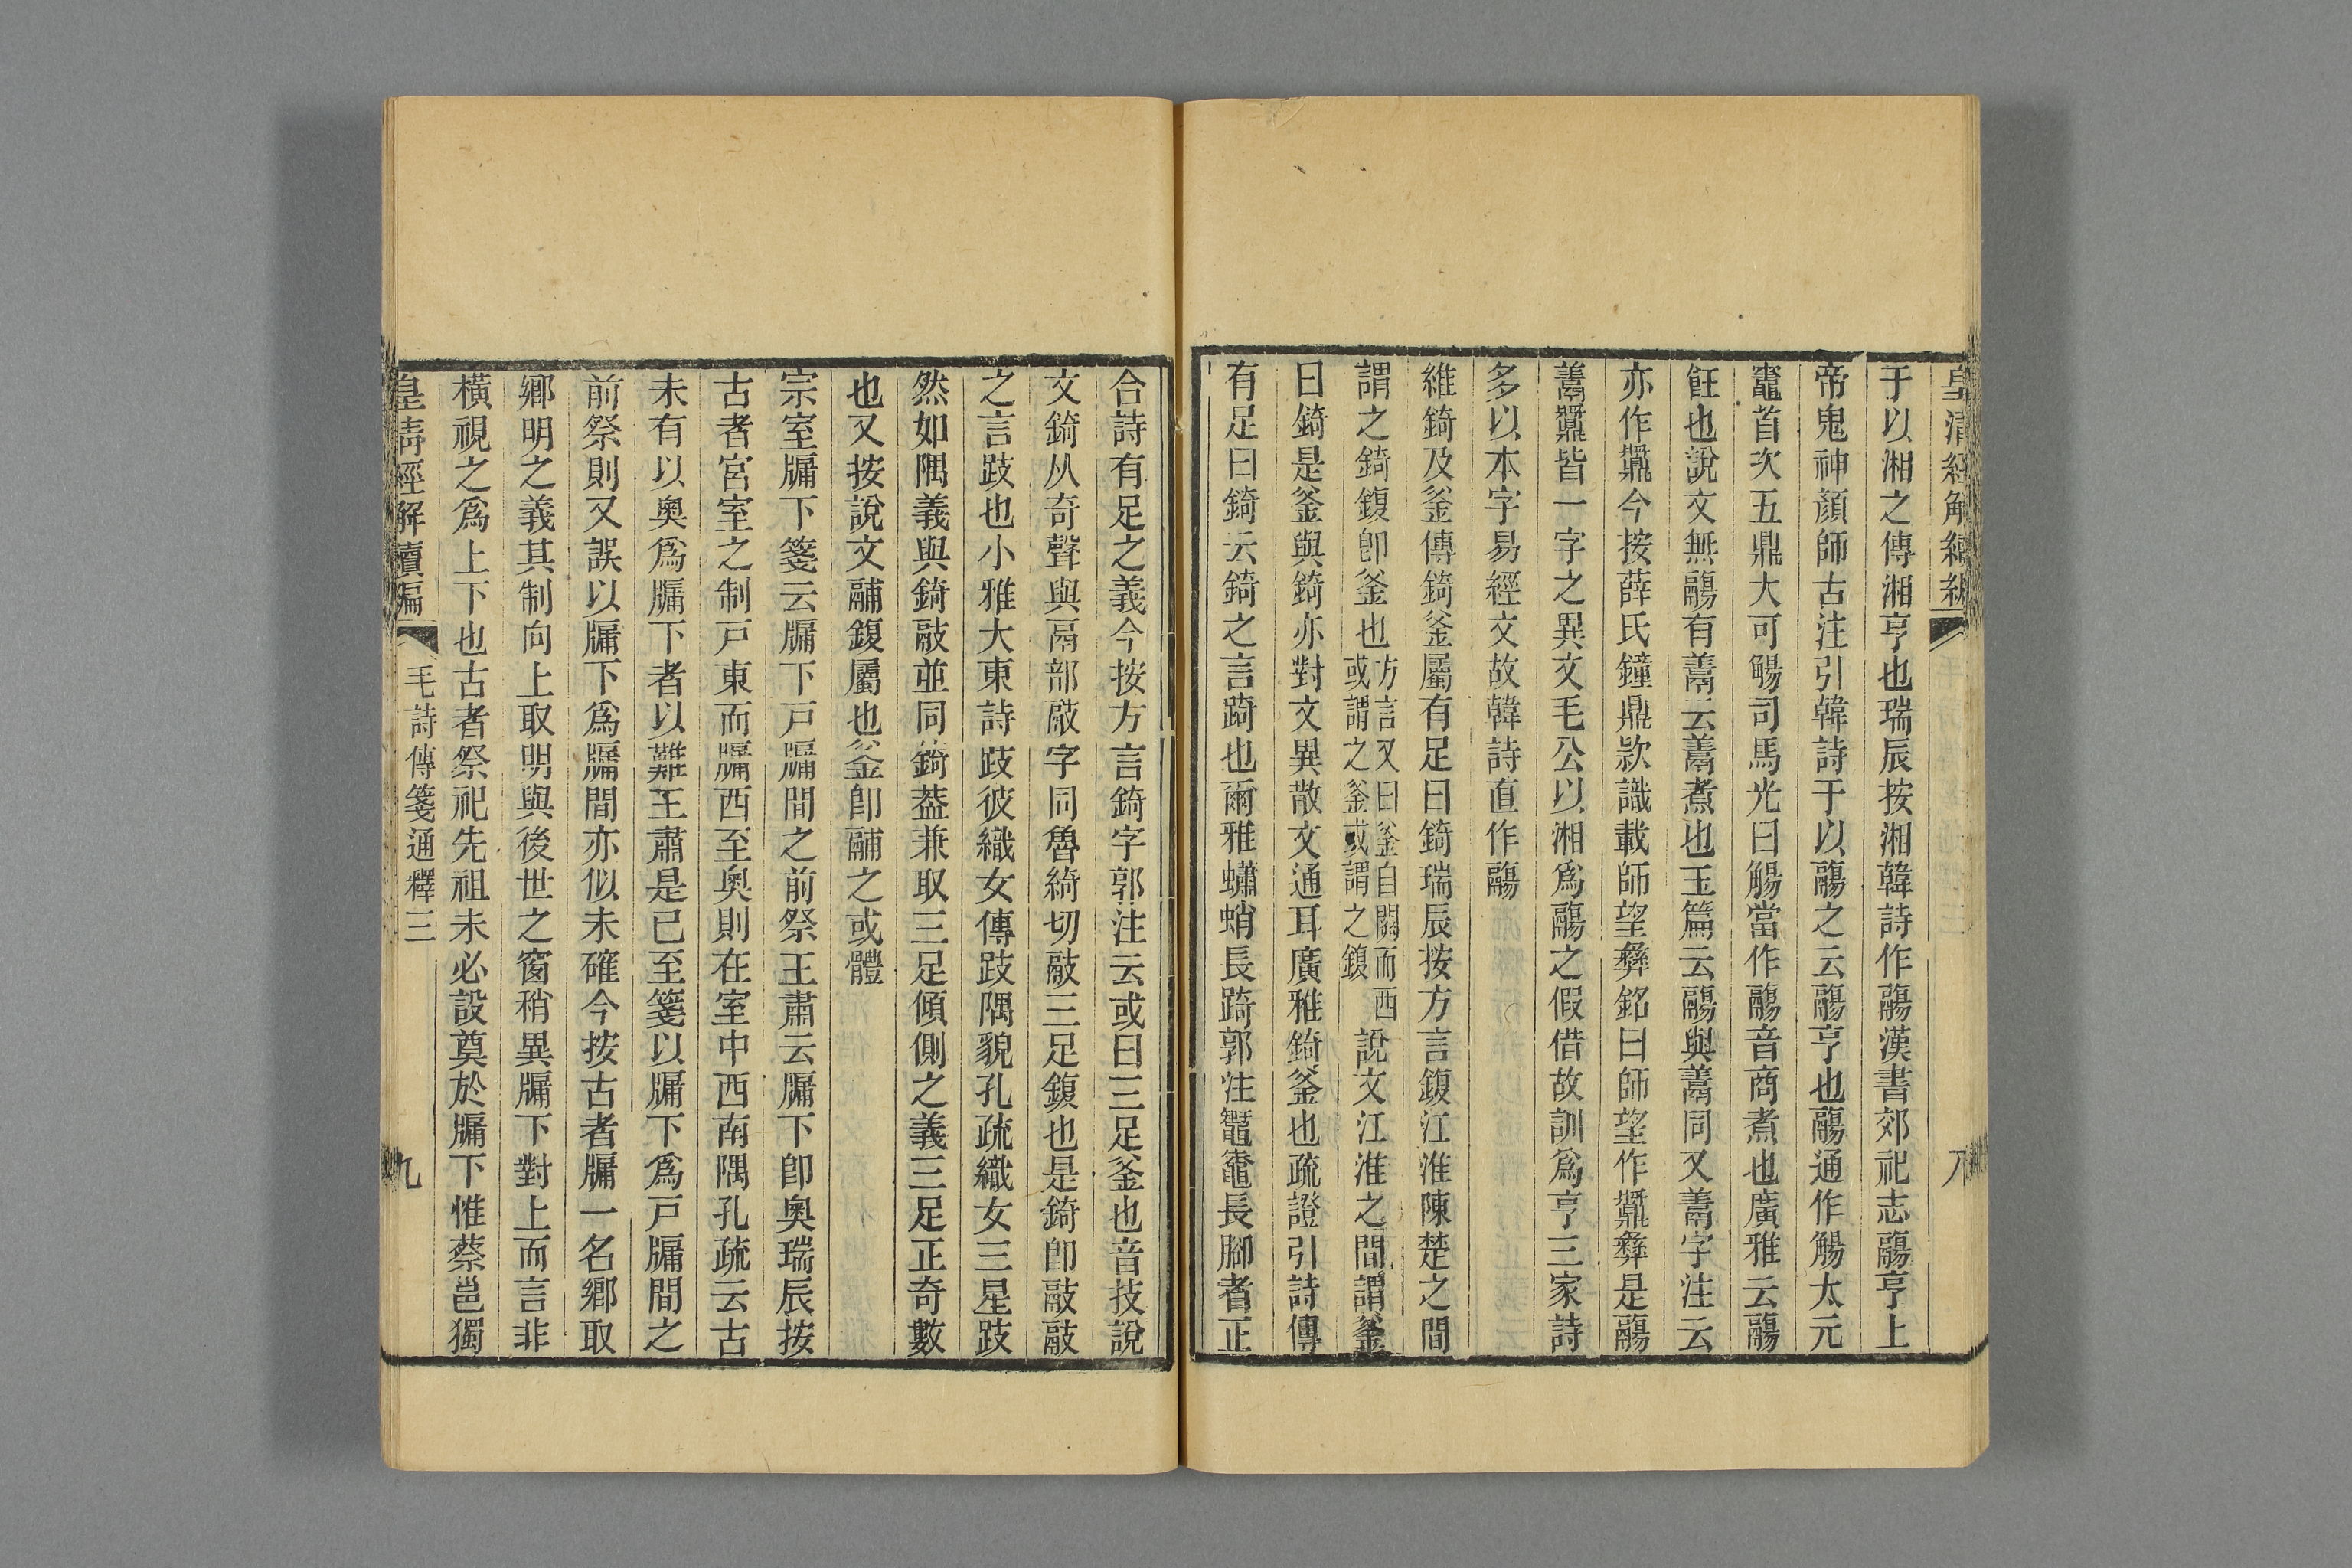 于以湘之傳湘亨也瑞辰按湘韓詩作鬺漢書郊祀志鬺亨上
帝鬼神顏師古注引韓詩于以鬺之云鬺亨也鬺通作觴太元
竈首次五鼎大可觴司馬光曰觴當作鬺音商煮也廣雅云鬺
飪也說文無鬺有鬻云鬻煮也玉篇云鬺與鬻同又鬻字注云
亦作鷊今按薛氏鐘鼎款識載師望彝銘曰師望作彝是鬺
皆一字之異文毛公以湘爲鬺之假借故訓爲亨三家詩
多以本字易經文故韓詩直作鬺
維錡及釜傳錡釜屬有足曰錡瑞辰按方言鍑江淮陳楚之間
謂之錡鍑卽釜也方言又曰釜自關而西或謂之釜或謂之鍑說文江淮之間謂釜
曰錡是釜與錡亦對文異散文通耳廣雅錡釜也疏證引詩傳
有足曰錡云錡之言踦也爾雅蠨蛸長踦郭注鼅鼄長腳者正
合詩有足之義今按方言錡字郭注云或曰三足釜也音技說
文錡从奇聲與鬲部䰙字同魯綺切䰙三足鍑也是錡卽䰙䰙
之言跂也小雅大東詩跂彼織女傳跂隅貌孔疏織女三星跂
然如隅義與錡䰙並同錡葢兼取三足傾側之義三足正奇數
也又按說文鬴鍑屬也釜卽鬴之或體
宗室牖下箋云牖下戸牖間之前祭王肅云牖下卽奧瑞辰按
古者宮室之制戸東而牖西至奧則在室中西南隅孔疏云古
未有以奧爲牖下者以難王肅是已至箋以牖下爲戸牖間之
前祭則又誤以牖下爲牖間亦似未確今按古者牖一名鄉取
鄉明之義其制向上取明與後世之窗稍異牖下對上而言非
橫視之爲上下也古者祭祀先祖未必設奠於牖下惟蔡邕獨
皇清經解續編
毛詩傳箋通釋三
九